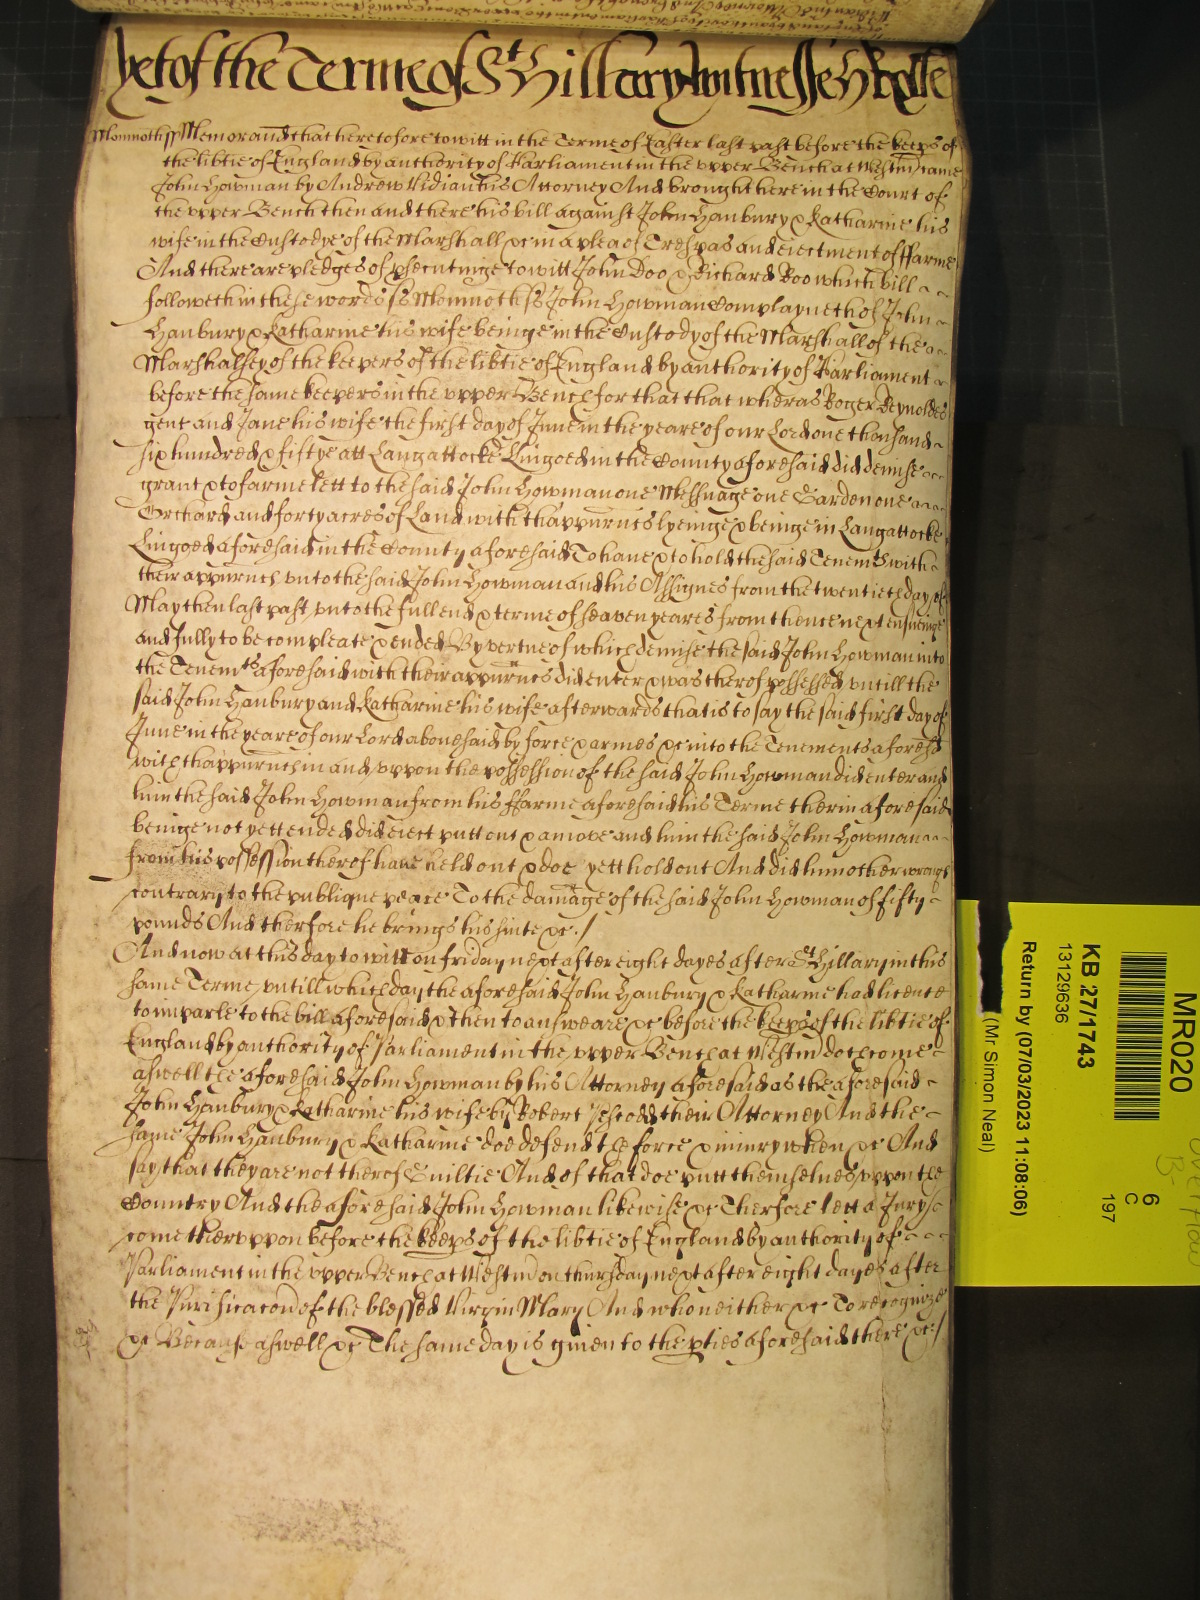 yet of the Terme of St Hillary witnesse H Rolle
Monmoth ss Memorand that heretofore to witt in the Terme of Easter last past before the keeps of
the libtie of England by authority of Parliament in the upper Bench at Westm came
John Howman by Andrew Vidian his Attorney And brought here in the Court of
the upper Bench then and there his bill against John Hanbury & Katharine his
wife in the Custodye of the Marshall &c in a plea of Trespas and eiectment of ffarme
And there are pledges of psecutinge to witt John Doo & Richard Roo which bill
followeth in these words ss Monmoth ss John Howman Complayneth of John
Hanbury & Katharine his wife beinge in the Custody of the Marshall of the
Marshalsey of the keepers of the libtie of England by authority of Parliament
before the same keepers in the upper Bench for that that wheras Roger Reynoldes
gent and Jane his wife the first day of June in the yeare of our Lord one thousand
six hundred & fiftye att Langattocke Lingoed in the County aforesaid did demise
grant & to farme lett to the said John Howman one Messuage one Garden one
Orchard and forty acres of Land with thappurntes lyeinge & beinge in Langattocke
Lingoed aforesaid in the County aforesaid To haue & to hold the said Tenemts with
their appurnces vnto the said John Howman and his Assignes from the twentieth day of
May then last past vnto the full end & terme of seaven yeares from thence next ensueinge
and fully to be compleate & ended By vertue of which demise the said John Howman into
the Tenemts aforesaid with their appurntes did enter & was therof possessed vntill the
said John Hanbury and Katharine his wife afterwards that is to say the said first day of
June in the yeare of our Lord abouesaid by force & armes &c into the Tenements aforesd
with thappurntes in and vppon the possession of the said John Howman did enter and
him the said John Howman from his ffarme aforesaid his Terme therin aforesaid
beinge not yett ended did eiect putt out & amove and him the said John Howman
from his possession therof haue held out & doe yett hold out And did him other wrongs
contrary to the publique peace To the damage of the said John Howman of fifty
pounds And therfore he brings his suite &c./
And now at this day to witt on friday next after eight dayes after St Hillary in this
same Terme vntill which day the aforesaid John Hanbury & Katharine had licence
to imparle to the bill aforesaid & then to answeare &c before the keeps of the libtie of
England by authority of Parliament in the upper Bench at Westm doth come
aswell the aforesaid John Howman by his Attorney aforesaid as the aforesaid
John Hanbury & Katharine his wife by Robert their Attorney And the
same John Hanbury & Katharine doe defend the force & iniury when &c And
say that they are not therof Guiltie And of that doe putt themselues vppon the
Country And the aforesaid John Howman likewise &c Therfore lett a Jury
come thervppon before the keeps of the libtie of England by authority of
Parliament in the upper Bench at Westm on thursday next after eight dayes after
the Purificacon of the blessed Virgin Mary And who neither &c To recognize
&c Because aswell &c The same day is giuen to the pties aforesaid there &c/
MR020
KB 27/1743
13129636
Return by (07/03/2023 11:08:06)
(Mr Simon Neal)
6
C
197